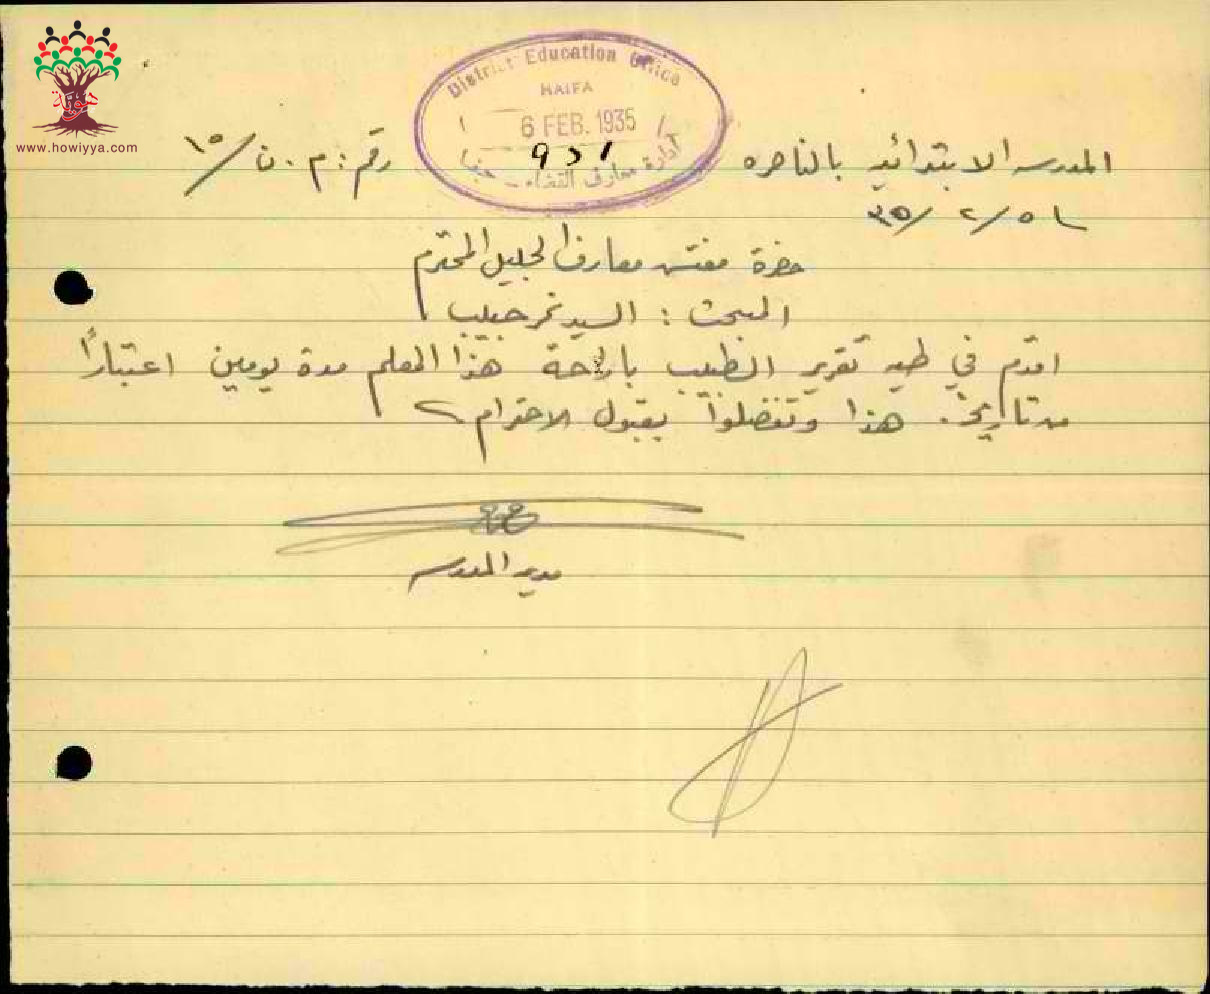 هوية
www.howiyya.com
District Education Office
HAIFA
6 FEB. 1935
ادارة معارف القضاء - حيفا
المدرسه الابتدائيه بالناصره
رقم: م. ن/١٥
٥/٢/٣٥
حضرة مفتش معارف الجليل المحترم
المبحث: السيد نمر حبيب
اقدم في طيه تقرير الطبيب باراحة هذا المعلم مدة يومين اعتبارًا
من تاريخه. هذا وتفضلوا بقبول الاحترام
مدير المدرسه